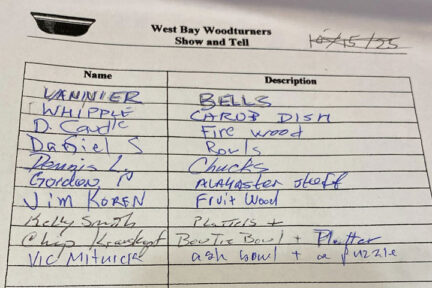 West Bay Woodturners
Show and Tell
10/15/25
Name Description
VANNIER BELLS
WHIPPLE CAROB DISH
D. Caudle Fire wood
Daniel S Bowls
Dennis L. Chucks
Gordon P Alabaster stuff
Jim KOREN Fruit Wood
Kelly Smith Platters +
Chip Bow Tie Bowl + Platter
Vic Mitnick ash bowl + a puzzle